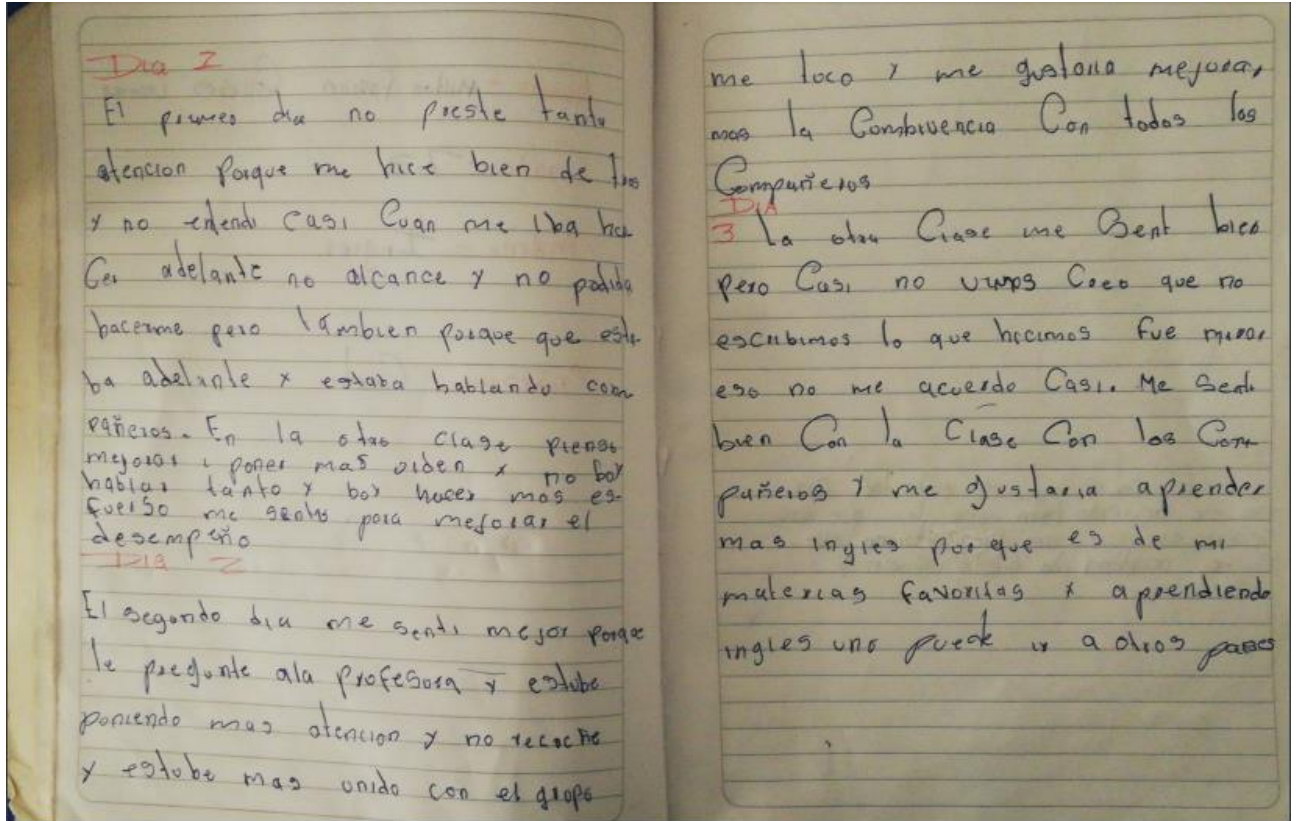 Dia 1
El primer dia no preste tanta
atencion Porque me hice bien de tras
y no entendi casi Cuan me iba ha
Cer adelante no alcance y no podida
hacerme pero tambien porque que esta
ba adelante y estaba hablando com
pañeros. En la otra clase pienso
mejorar i poner mas orden y no boy
hablar tanto y boy hacer mas es-
fuerso me sento para mejorar el
desempeño
Dia 2
El segundo dia me senti mejor porque
le pregunte ala Profesora y estube
poniendo mas atencion y no recoche
y estube mas unido con el grupo
me toco y me gustaria mejorar
mas la Combivencia Con todos los
Compañeros
DIA
3 la otra Clase me Sent bien
pero Casi no vimos Creo que no
escribimos lo que hicimos fue mirar
eso no me acuerdo Casi. Me Senti
bien Con la Clase Con los Com
pañeros y me gustaria aprender
mas ingles porque es de mi
materias favoritas y aprendiendo
ingles uno puede ir a otros paises